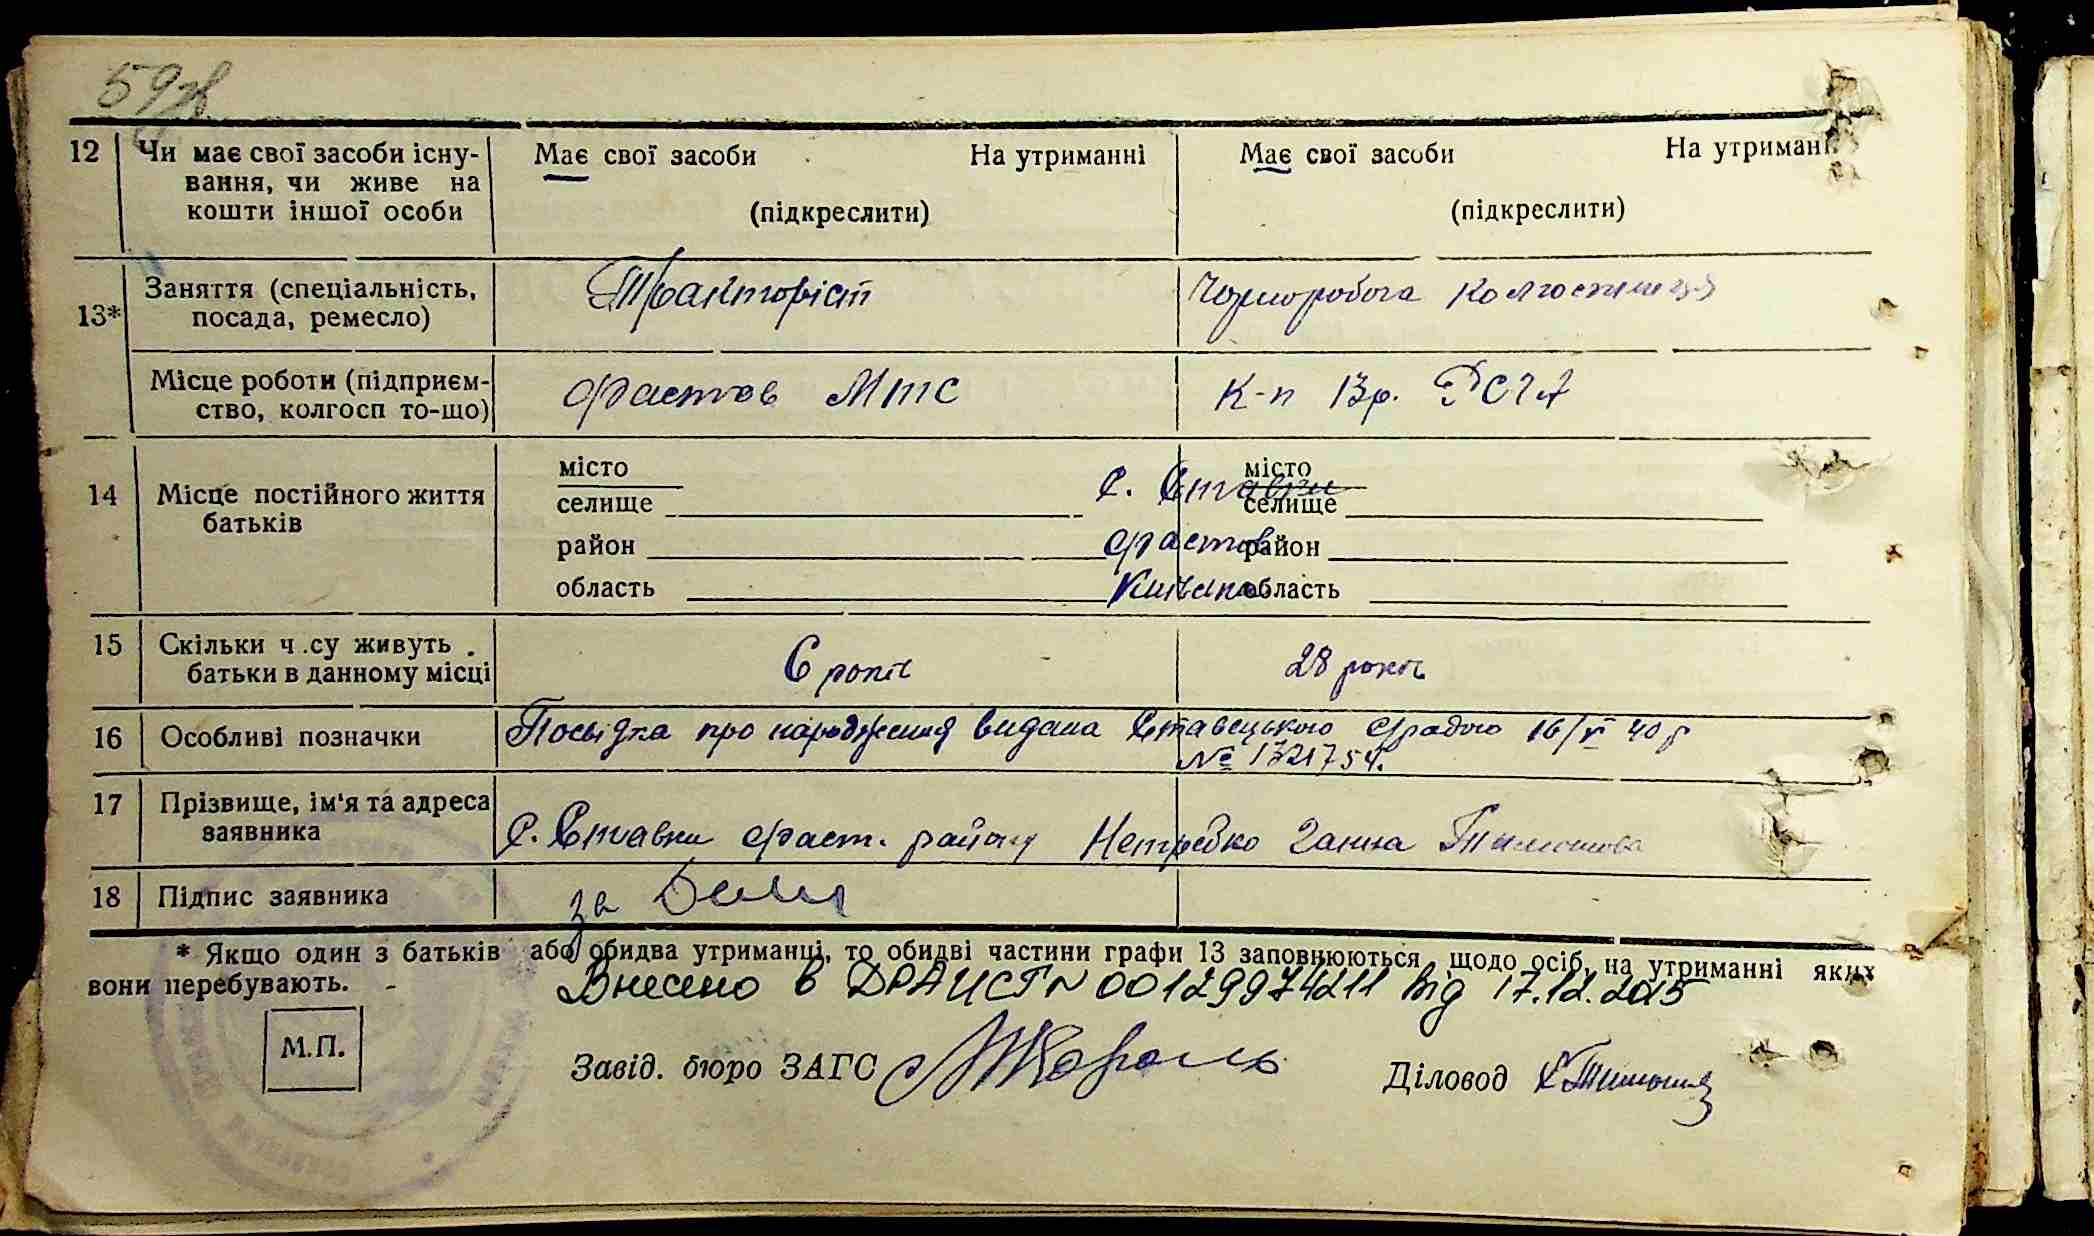 59зв
12 Чи має свої засоби існу- Має свої засоби На утриманні Має свої засоби На утриманні
вання, чи живе на
кошти іншої особи (підкреслити) (підкреслити)
13* Заняття (спеціальність, Тракторіст Чорноробоча Колгоспниця
посада, ремесло)
Місце роботи (підприєм- Фастов МТС К-п 13р. РСЧА
ство, колгосп то-що)
14 Місце постійного життя місто місто
батьків селище с. Ставки селище
район Фастов район
область Київська область
15 Скільки ч.су живуть 6 років 28 років
батьки в данному місці
16 Особливі позначки Посвідка про народження видана Ставецькою с/радою 16/V 40 р
№ 1321754.
17 Прізвище, ім'я та адреса
заявника С. Ставки Фаст. району Нетребко Ганна Тимошова
18 Підпис заявника за
* Якщо один з батьків або обидва утриманці, то обидві частини графи 13 заповнюються щодо осіб, на утриманні яких
вони перебувають.
Внесено в ДРАЦСГ N 00129974211 від 17.12.2015
М.П. Завід. бюро ЗАГС Король Діловод